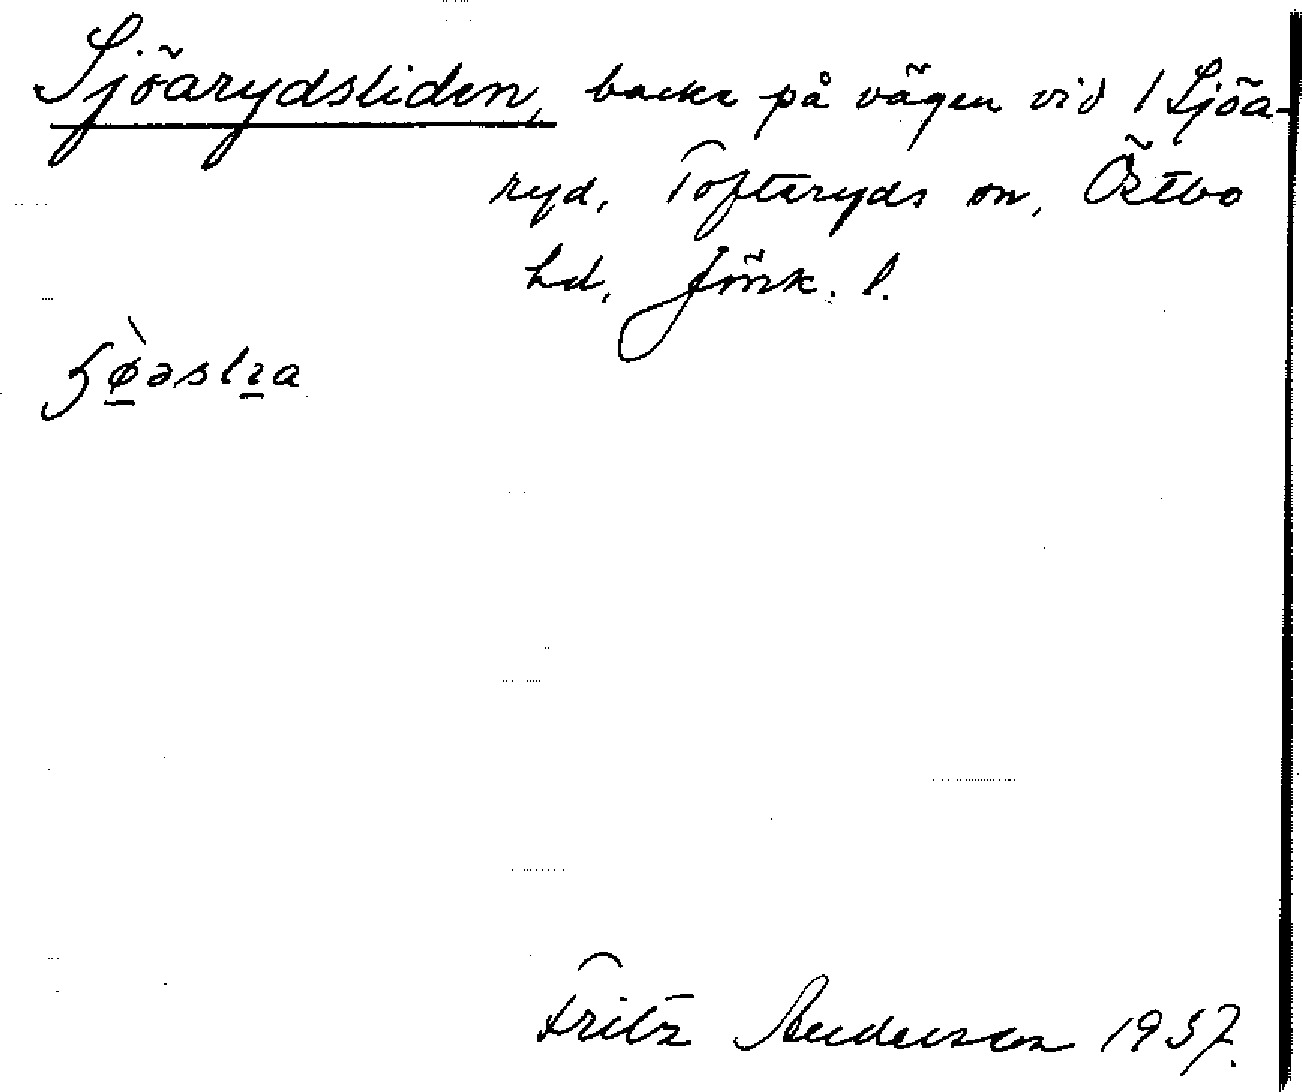 Sjöarydsliden, backe på vägen vid 1 Sjöa-
ryd, Toftaryds sn, Östbo
hd, Jönk. l.
Fritz Anderson 1937.